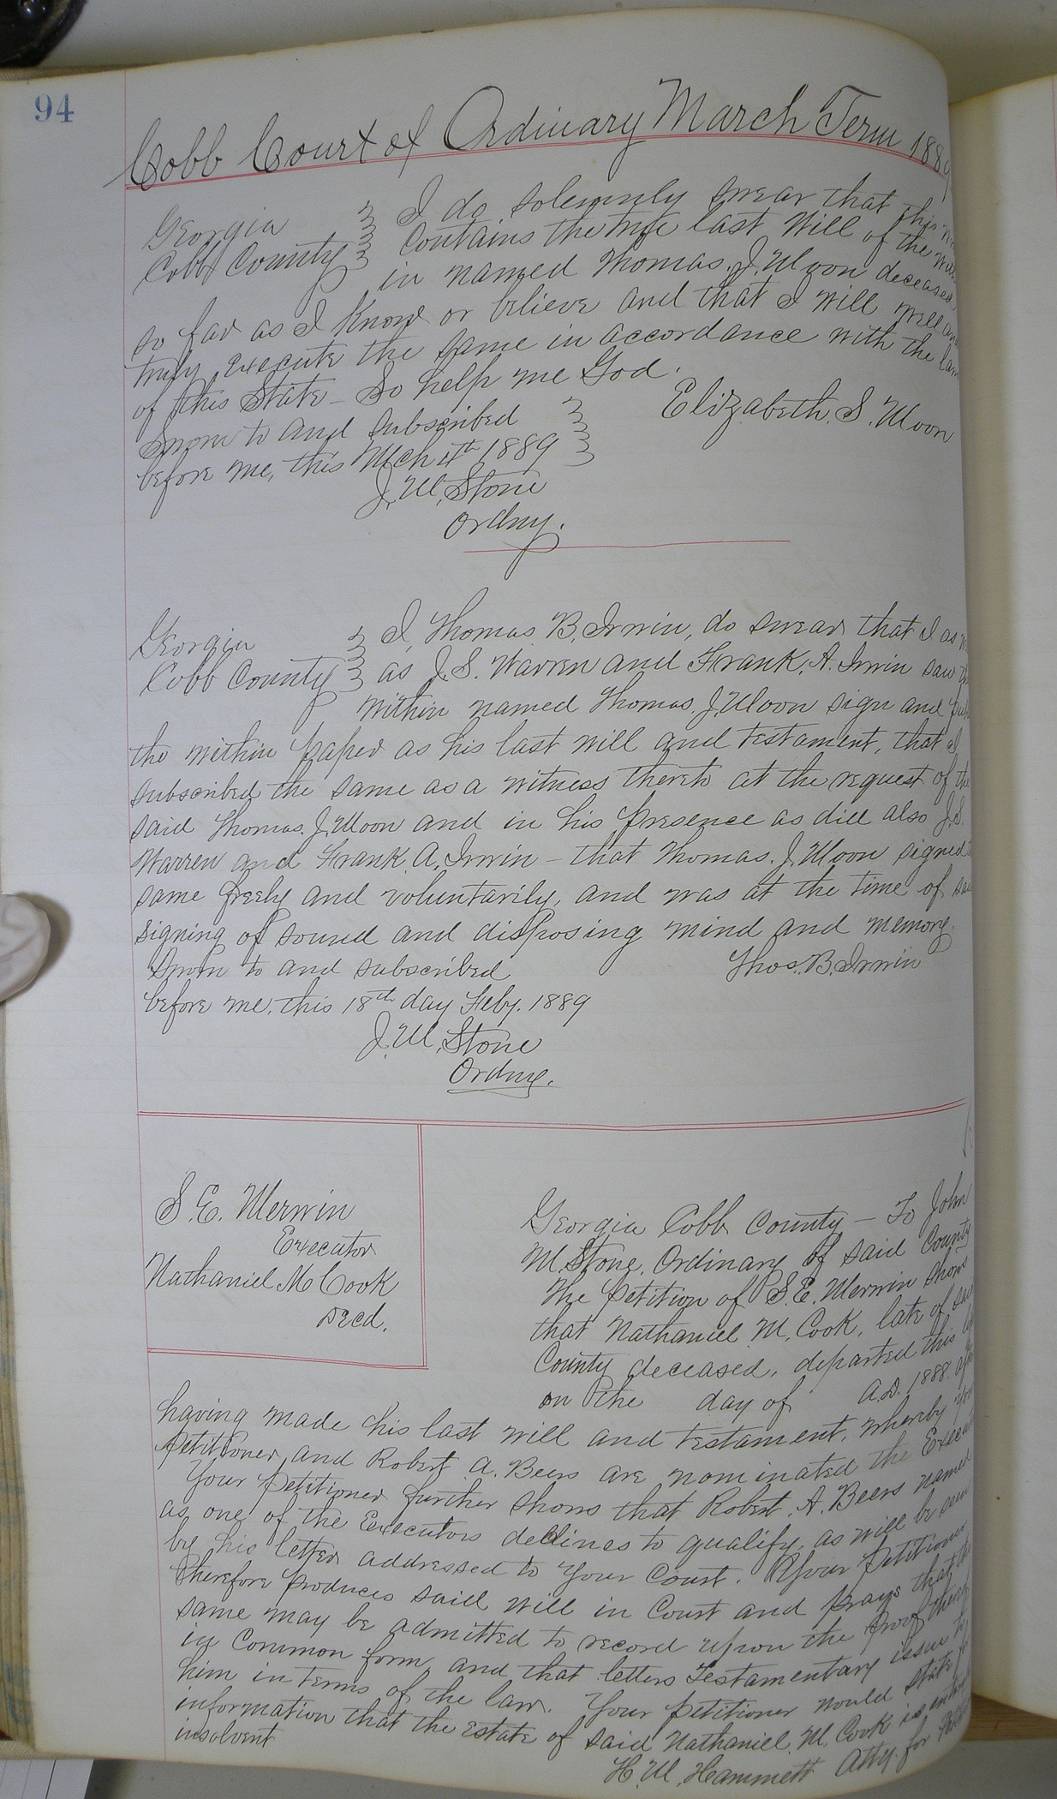 94
Cobb Court of Ordinary March Term 1889
Georgia
Cobb County
I do solemnly swear that this
contains the true last Will of the with
in named Thomas. J. Moon deceased,
so far as I Know or believe and that I will well and
truly execute the same in accordance with the law
of this State - So help me God.
Sworn to and subscribed
before me, this Mch 4th 1889
Elizabeth. S. Moon
J. M. Stone
Ordny.
Georgia
Cobb County
I, Thomas B. Irwin, do swear that I as
as J. S. Warren and Frank. A. Irwin saw
within named Thomas. J. Moon sign and
the within paper as his last will and testament, that I
subscribed the same as a witness thereto at the request of the
said Thomas. J. Moon and in his presence as did also J. S.
Warren and Frank. A. Irwin - that Thomas. J. Moon signed
same freely and voluntarily, and was at the time of
signing of sound and disposing mind and memory.
Sworn to and subscribed
before me, this 18th day Feby. 1889
Thos. B. Irwin
J. M. Stone
Ordny.
S. E. Merwin
Executor
Nathaniel M Cook
Decd.
Georgia Cobb County - To John
M. Stone, Ordinary of said County
The Petition of S. E. Merwin shows
that Nathaniel M. Cook, late of said
County deceased, departed this
on the day of A.D. 1888.
having made his last will and testament, whereby your
petitioner and Robert A. Beers are nominated the
Your Petitioner further shows that Robert. A. Beers named
as one of the Executors declines to qualify, as will be seen
by his letter addressed to Your Court. Your Petitioner
therefore produces said will in Court and prays that the
same may be admitted to record upon the proof thereof
in Common form, and that letters Testamentary issue to
him in terms of the law. Your petitioner would state
information that the Estate of said Nathaniel. M. Cook is
insolvent
H. M. Hammett Atty. for